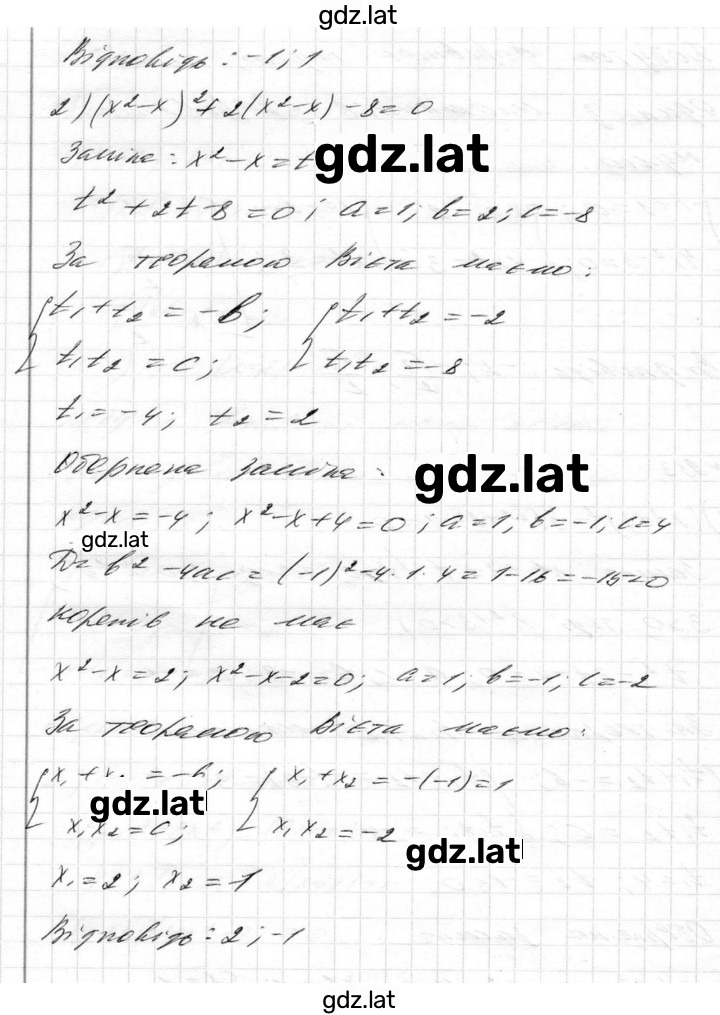 gdz.lat
Відповідь: -1; 1
2) (x²-x)²+2(x²-x)-8=0
Заміна: x²-x=t
gdz.lat
t²+2t-8=0; a=1; b=2; c=-8
За теоремою Вієта маємо:
t₁+t₂=-b; t₁+t₂=-2
t₁t₂=c; t₁t₂=-8
t₁=-4; t₂=2
Обернена заміна:
gdz.lat
x²-x=-4; x²-x+4=0; a=1; b=-1; c=4
gdz.lat
D=b²-4ac=(-1)²-4·1·4=1-16=-15<0
коренів не має
x²-x=2; x²-x-2=0; a=1; b=-1; c=-2
За теоремою Вієта маємо:
x₁+x₂=-b; x₁+x₂=-(-1)=1
gdz.lat
x₁x₂=c; x₁x₂=-2
gdz.lat
x₁=2; x₂=-1
Відповідь: 2; -1
gdz.lat